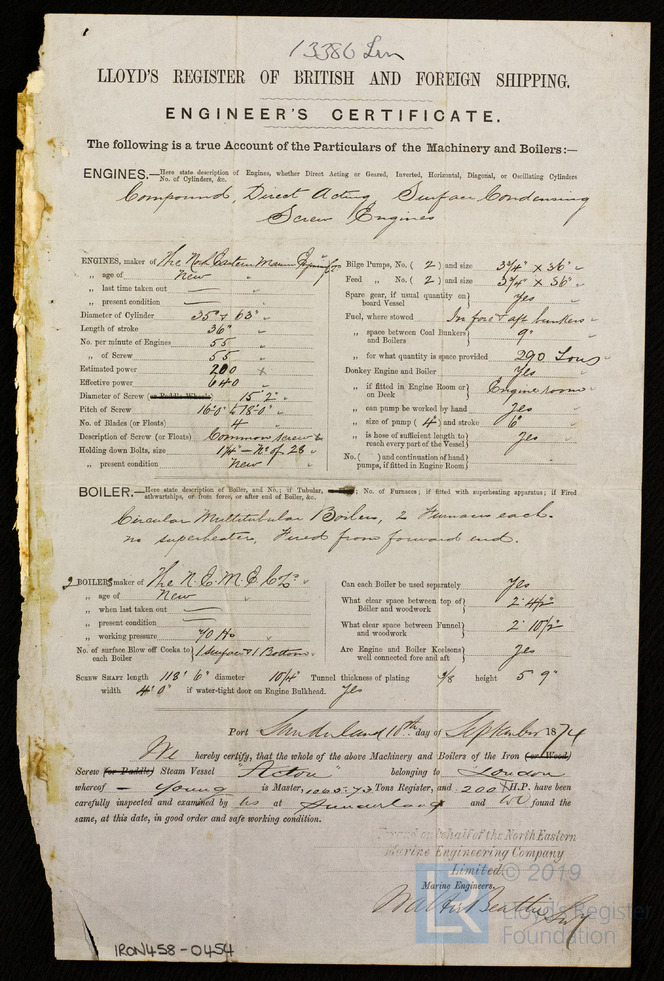 13386 Lon
LLOYD'S REGISTER OF BRITISH AND FOREIGN SHIPPING.
ENGINEER'S CERTIFICATE.
The following is a true Account of the Particulars of the Machinery and Boilers:—
ENGINES.—Here state description of Engines, whether Direct Acting or Geared, Inverted, Horizontal, Diagonal, or Oscillating Cylinders
No. of Cylinders, &c.
Compound, Direct Acting Surface Condensing
Screw Engines
ENGINES, maker of The North Eastern Marine
„ age of New „
„ last time taken out — „
„ present condition — „
Diameter of Cylinder 35" & 63" „
Length of stroke 36" „
No. per minute of Engines 55 „
„ of Screw 55 „
Estimated power 200
Effective power 640
Diameter of Screw (or Paddle Wheels) 15' 2" „
Pitch of Screw 16' 0" to 18' 0" „
No. of Blades (or Floats) 4 „
Description of Screw (or Floats) Common screw
Holding down Bolts, size 1¼" — No of 28 „
„ present condition New „
Bilge Pumps, No. ( 2 ) and size 3¾" x 36" „
Feed „ No. ( 2 ) and size 3¾" x 36" „
Spare gear, if usual quantity on
board Vessel } Yes „
Fuel, where stowed In fore & aft bunkers „
„ space between Coal Bunkers
and Boilers } 9" „
„ for what quantity is space provided 290 Tons „
Donkey Engine and Boiler Yes „
„ if fitted in Engine Room or
on Deck } Engine room „
„ can pump be worked by hand Yes „
„ size of pump ( 4" ) and stroke 6" „
„ is hose of sufficient length to
reach every part of the Vessel } Yes „
No. ( ) and continuation of hand
pumps, if fitted in Engine Room }
BOILER.—Here state description of Boiler, and No.; if Tubular, ; No. of Furnaces; if fitted with superheating apparatus; if Fired
athwartships, or from fore, or after end of Boiler, &c.
Circular Multitubular Boilers, 2 Furnaces each.
no superheater, Fired from forward end.
2 BOILERS maker of The N. E. M. E. Co Ld „
„ age of New „
„ when last taken out —
„ present condition —
„ working pressure 70 lbs „
No. of surface Blow off Cocks to
each Boiler } 1 surface & 1 Bottom.
Can each Boiler be used separately Yes
What clear space between top of
Boiler and woodwork } 2' 4½"
What clear space between Funnel
and woodwork } 2' 10½"
Are Engine and Boiler Keelsons
well connected fore and aft } Yes
SCREW SHAFT length 118' 6" diameter 10¼" Tunnel thickness of plating ⅜ height 5' 9"
width 4' 0" if water-tight door on Engine Bulkhead. Yes
Port Sunderland 18th day of September 1874
We hereby certify, that the whole of the above Machinery and Boilers of the Iron (or Wood)
Screw (or Paddle) Steam Vessel "Acton" belonging to London
whereof — Young is Master, 1060.73 Tons Register, and 200 H.P. have been
carefully inspected and examined by us at Sunderland and we found the
same, at this date, in good order and safe working condition.
Signed on behalf of the North Eastern
Marine Engineering Company
Limited.
Marine Engineers.
Beattie Secy
© 2019
LR Lloyd's Register
Foundation
IRON458-0454